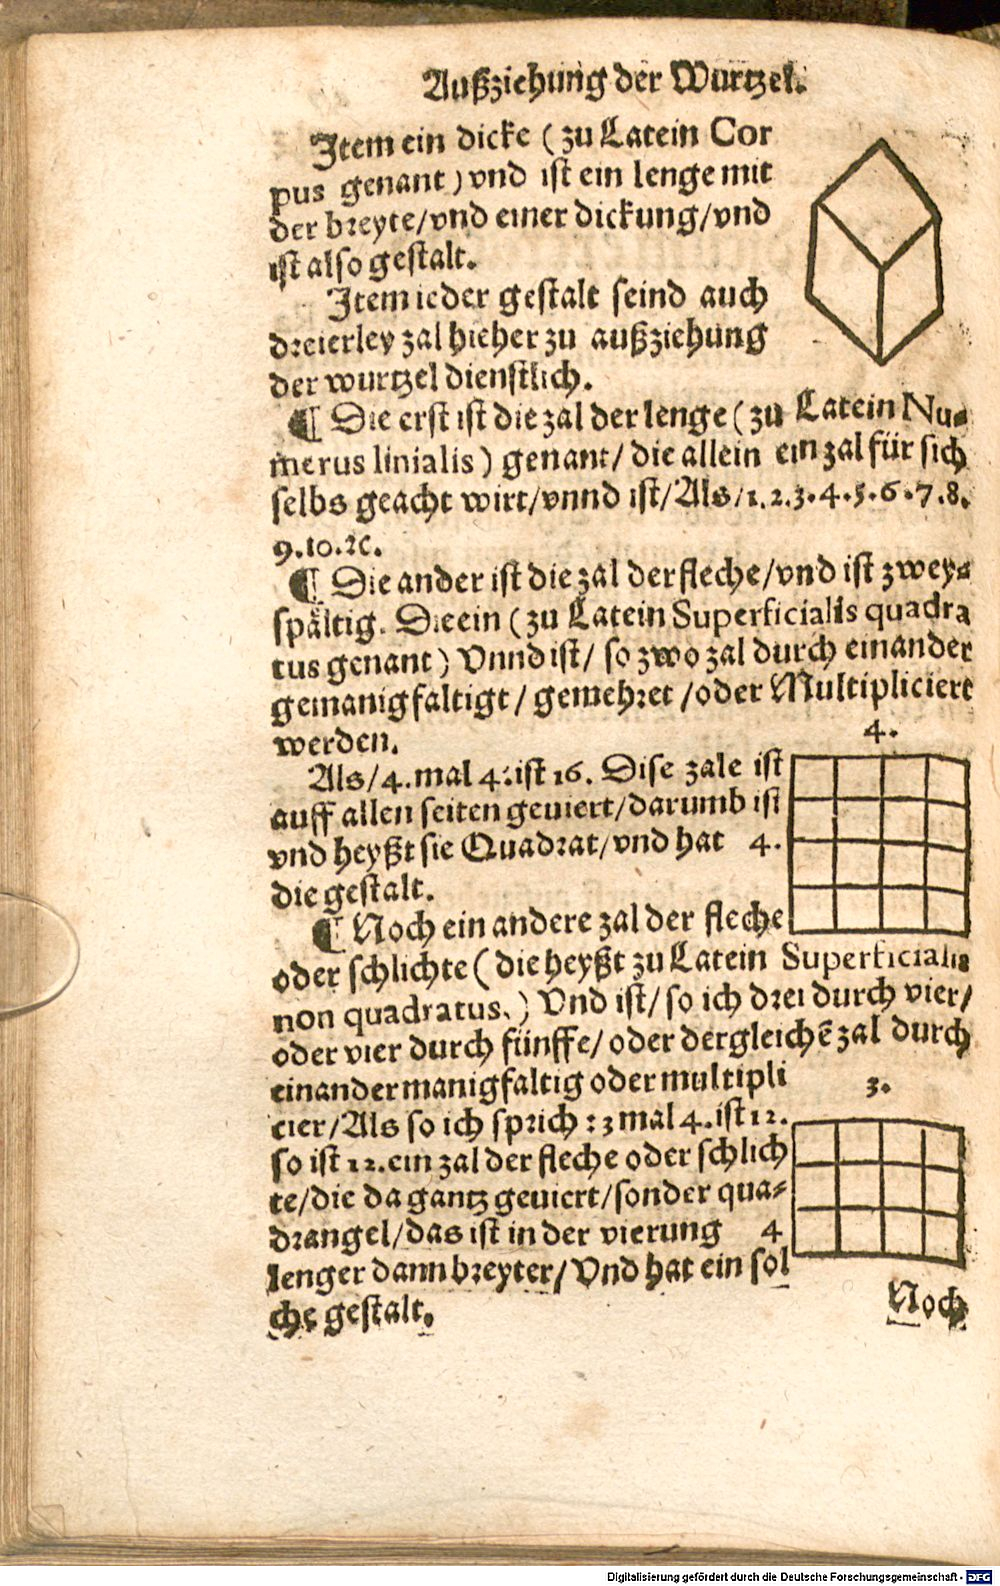 Außziehung der Wurtzel.
Item ein dicke ( zu Latein Cor
pus genant ) vnd ist ein lenge mit
der breyte/vnd einer dickung/vnd
ist also gestalt.
Item ieder gestalt seind auch
dreierley zal hieher zu außziehung
der wurtzel dienstlich.
¶ Die erst ist die zal der lenge ( zu Latein Nu-
merus linialis ) genant/ die allein ein zal für sich
selbs geacht wirt/vnnd ist/Als/1.2.3.4.5.6.7.8.
9.10.ꝛc.
¶ Die ander ist die zal der fleche/vnd ist zwey-
spältig. Die ein ( zu Latein Superficialis quadra
tus genant ) Vnnd ist/ so zwo zal durch einander
gemanigfaltigt / gemehret /oder Multipliciert
werden.
4.
Als/4.mal 4.ist 16. Dise zale ist
auff allen seiten geuiert/darumb ist
vnd heyßt sie Quadrat/vnd hat 4.
die gestalt.
¶ Noch ein andere zal der fleche
oder schlichte ( die heyßt zu Latein Superficialis
non quadratus. ) Vnd ist/ so ich drei durch vier/
oder vier durch fünffe/ oder dergleichē zal durch
einander manigfaltig oder multipli
3.
cier/Als so ich sprich : 3 mal 4.ist 12.
so ist 12.ein zal der fleche oder schlich
te/die da gantz geuiert/sonder qua-
drangel/das ist in der vierung 4
lenger dann breyter/Vnd hat ein sol
che gestalt.
Noch
Digitalisierung gefördert durch die Deutsche Forschungsgemeinschaft - DFG